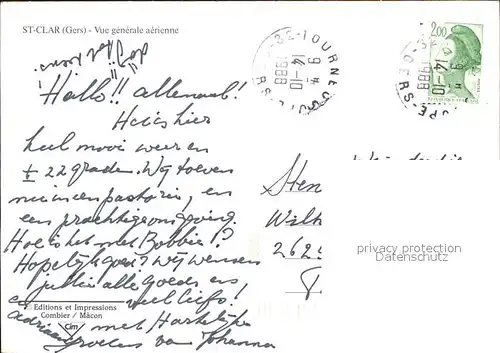 ST-CLAR (Gers) - Vue générale aérienne
Hallo!! allemaal!
Het is hier
heel mooi weer en
± 22 graden. Wij toeven
nu in een pastorie, en
een prachtige omgeving.
Hoe is het met Bobbie?
Hopelijk goed? Wij wensen
jullie alle goeds en
veel liefs!
Editions et Impressions
Combier / Mâcon
Cim
met Hartelijke
groeten van Johanna
Adriaan
TOURNECOUPE-GERS
9 H
14-10
1988
2,00
9 H
14-10
1988
privacy protection
Datenschutz
Sten
Walt
2625